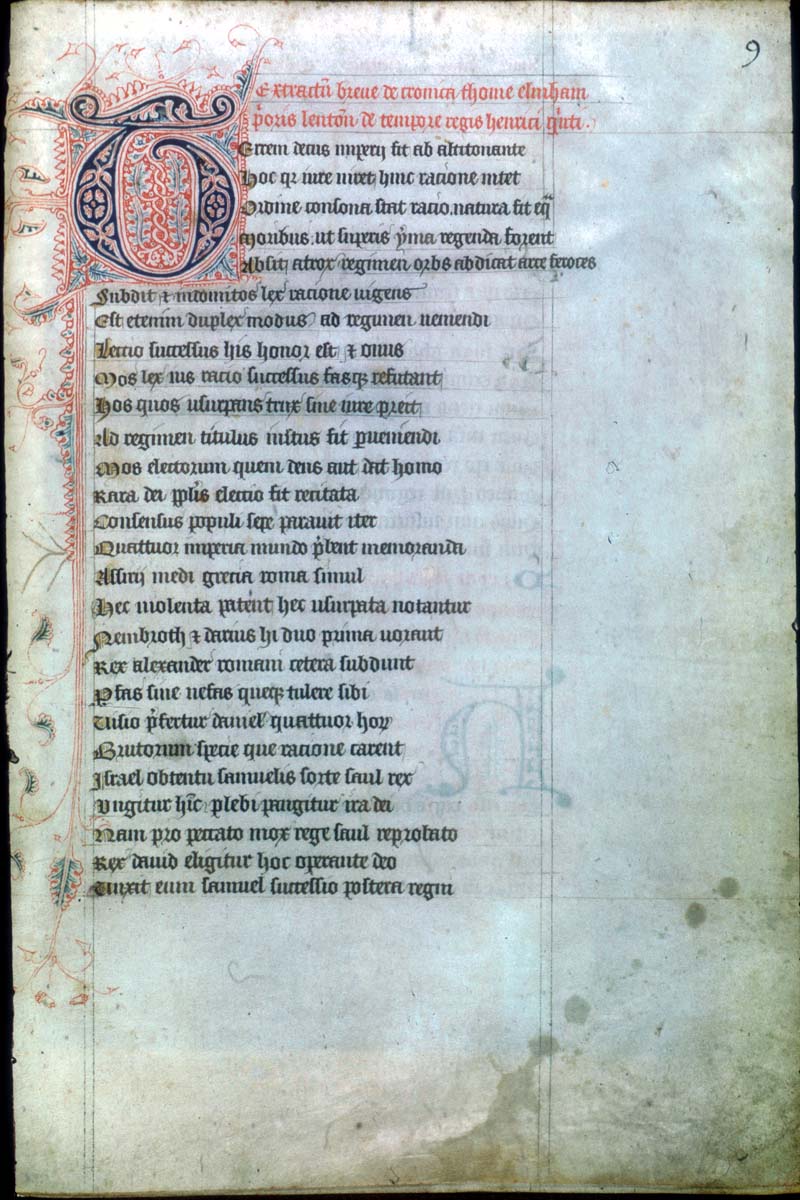 9
Extractū breue de cronica thome elmham
p̄oris lentōn de tempore regis henrici q̄nti.
Terrem decus imperij sit ab altitonante
Hoc qz iure uiret hinc racione nitet
Ordine consona stat racio, natura fit
Moribus, ut superis yma regenda forent
Absit, atrox regimen orbs abdicat arce feroces
Subdit & indomitos lex racione uigens
Est etenim duplex modus ad regimen ueniendi
Leccio successus his honor est & onus
Mos lex ius racio successus fasqz refutant
Hos quos usurpans trux sine iure preit
Ad regimen titulus iustus sit pueniendi
Mos electorum quem deus aut dat homo
Rara dei pplis eleccio fit recitata
Consensus populi sepe parauit iter
Quattuor imperia mundo p̄bent memoranda
Assirij medi grecia roma simul
Hec uiolenta patent hec usurpata notantur
Nembroth & darius hi duo prima uorant
Rex alexander romani cetera subdunt
Pfas siue nefas queqz tulere sibi
Uisio p̄fertur daniel quattuor horꝝ
Brutorum specie que racione carent
Israel obtentu samuelis sorte saul rex
Ungitur hīc plebi pangitur ira dei
Nam pro peccato mox rege saul reprobato
Rex dauid eligitur hoc operante deo
Unxit eum samuel successio postera regni